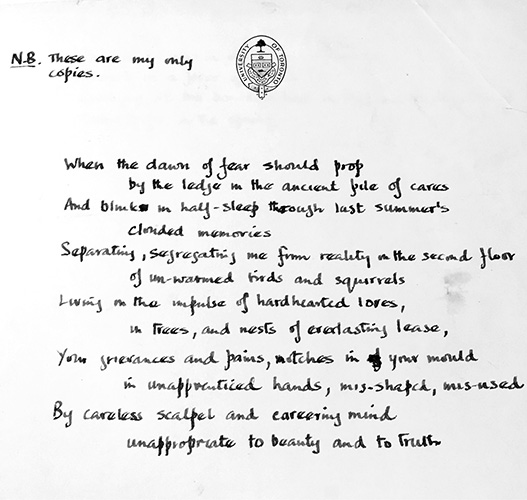 N.B. These are my only
copies.
UNIVERSITY OF TORONTO
When the dawn of fear should prop
by the ledge in the ancient pile of cares
And blinks in half-sleep through last summer's
clouded memories
Separating, segregating me from reality on the second floor
of un-warmed birds and squirrels
Living on the impulse of hardhearted loves,
in trees, and nests of everlasting lease,
Your grievances and pains, notches in your mould
in unapprenticed hands, mis-shaped, mis-used
By careless scalpel and careering mind
unappropriate to beauty and to truth